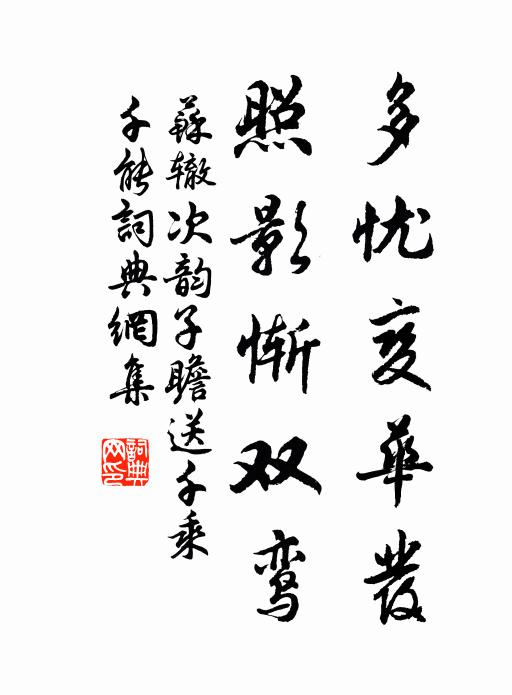 多忧变华發
照影惭双鸾
蘇辙次韵子瞻送千乘
千能詞典網集
詞典网印